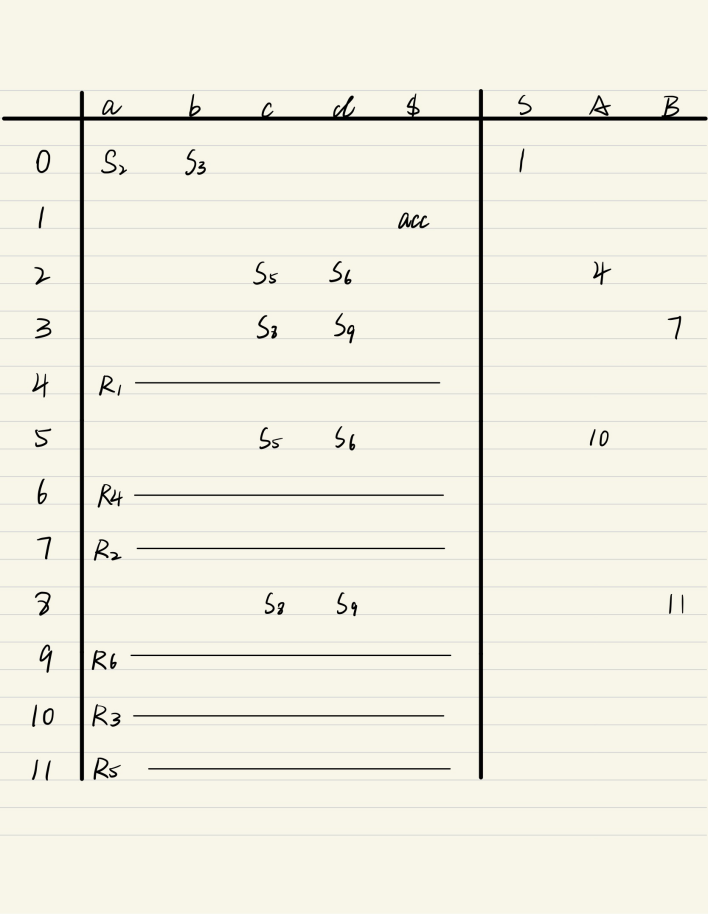 a b c d $ S A B
0 S₂ S₃ 1
1 acc
2 S₅ S₆ 4
3 S₈ S₉ 7
4 R₁
5 S₅ S₆ 10
6 R₄
7 R₂
8 S₈ S₉ 11
9 R₆
10 R₃
11 R₅